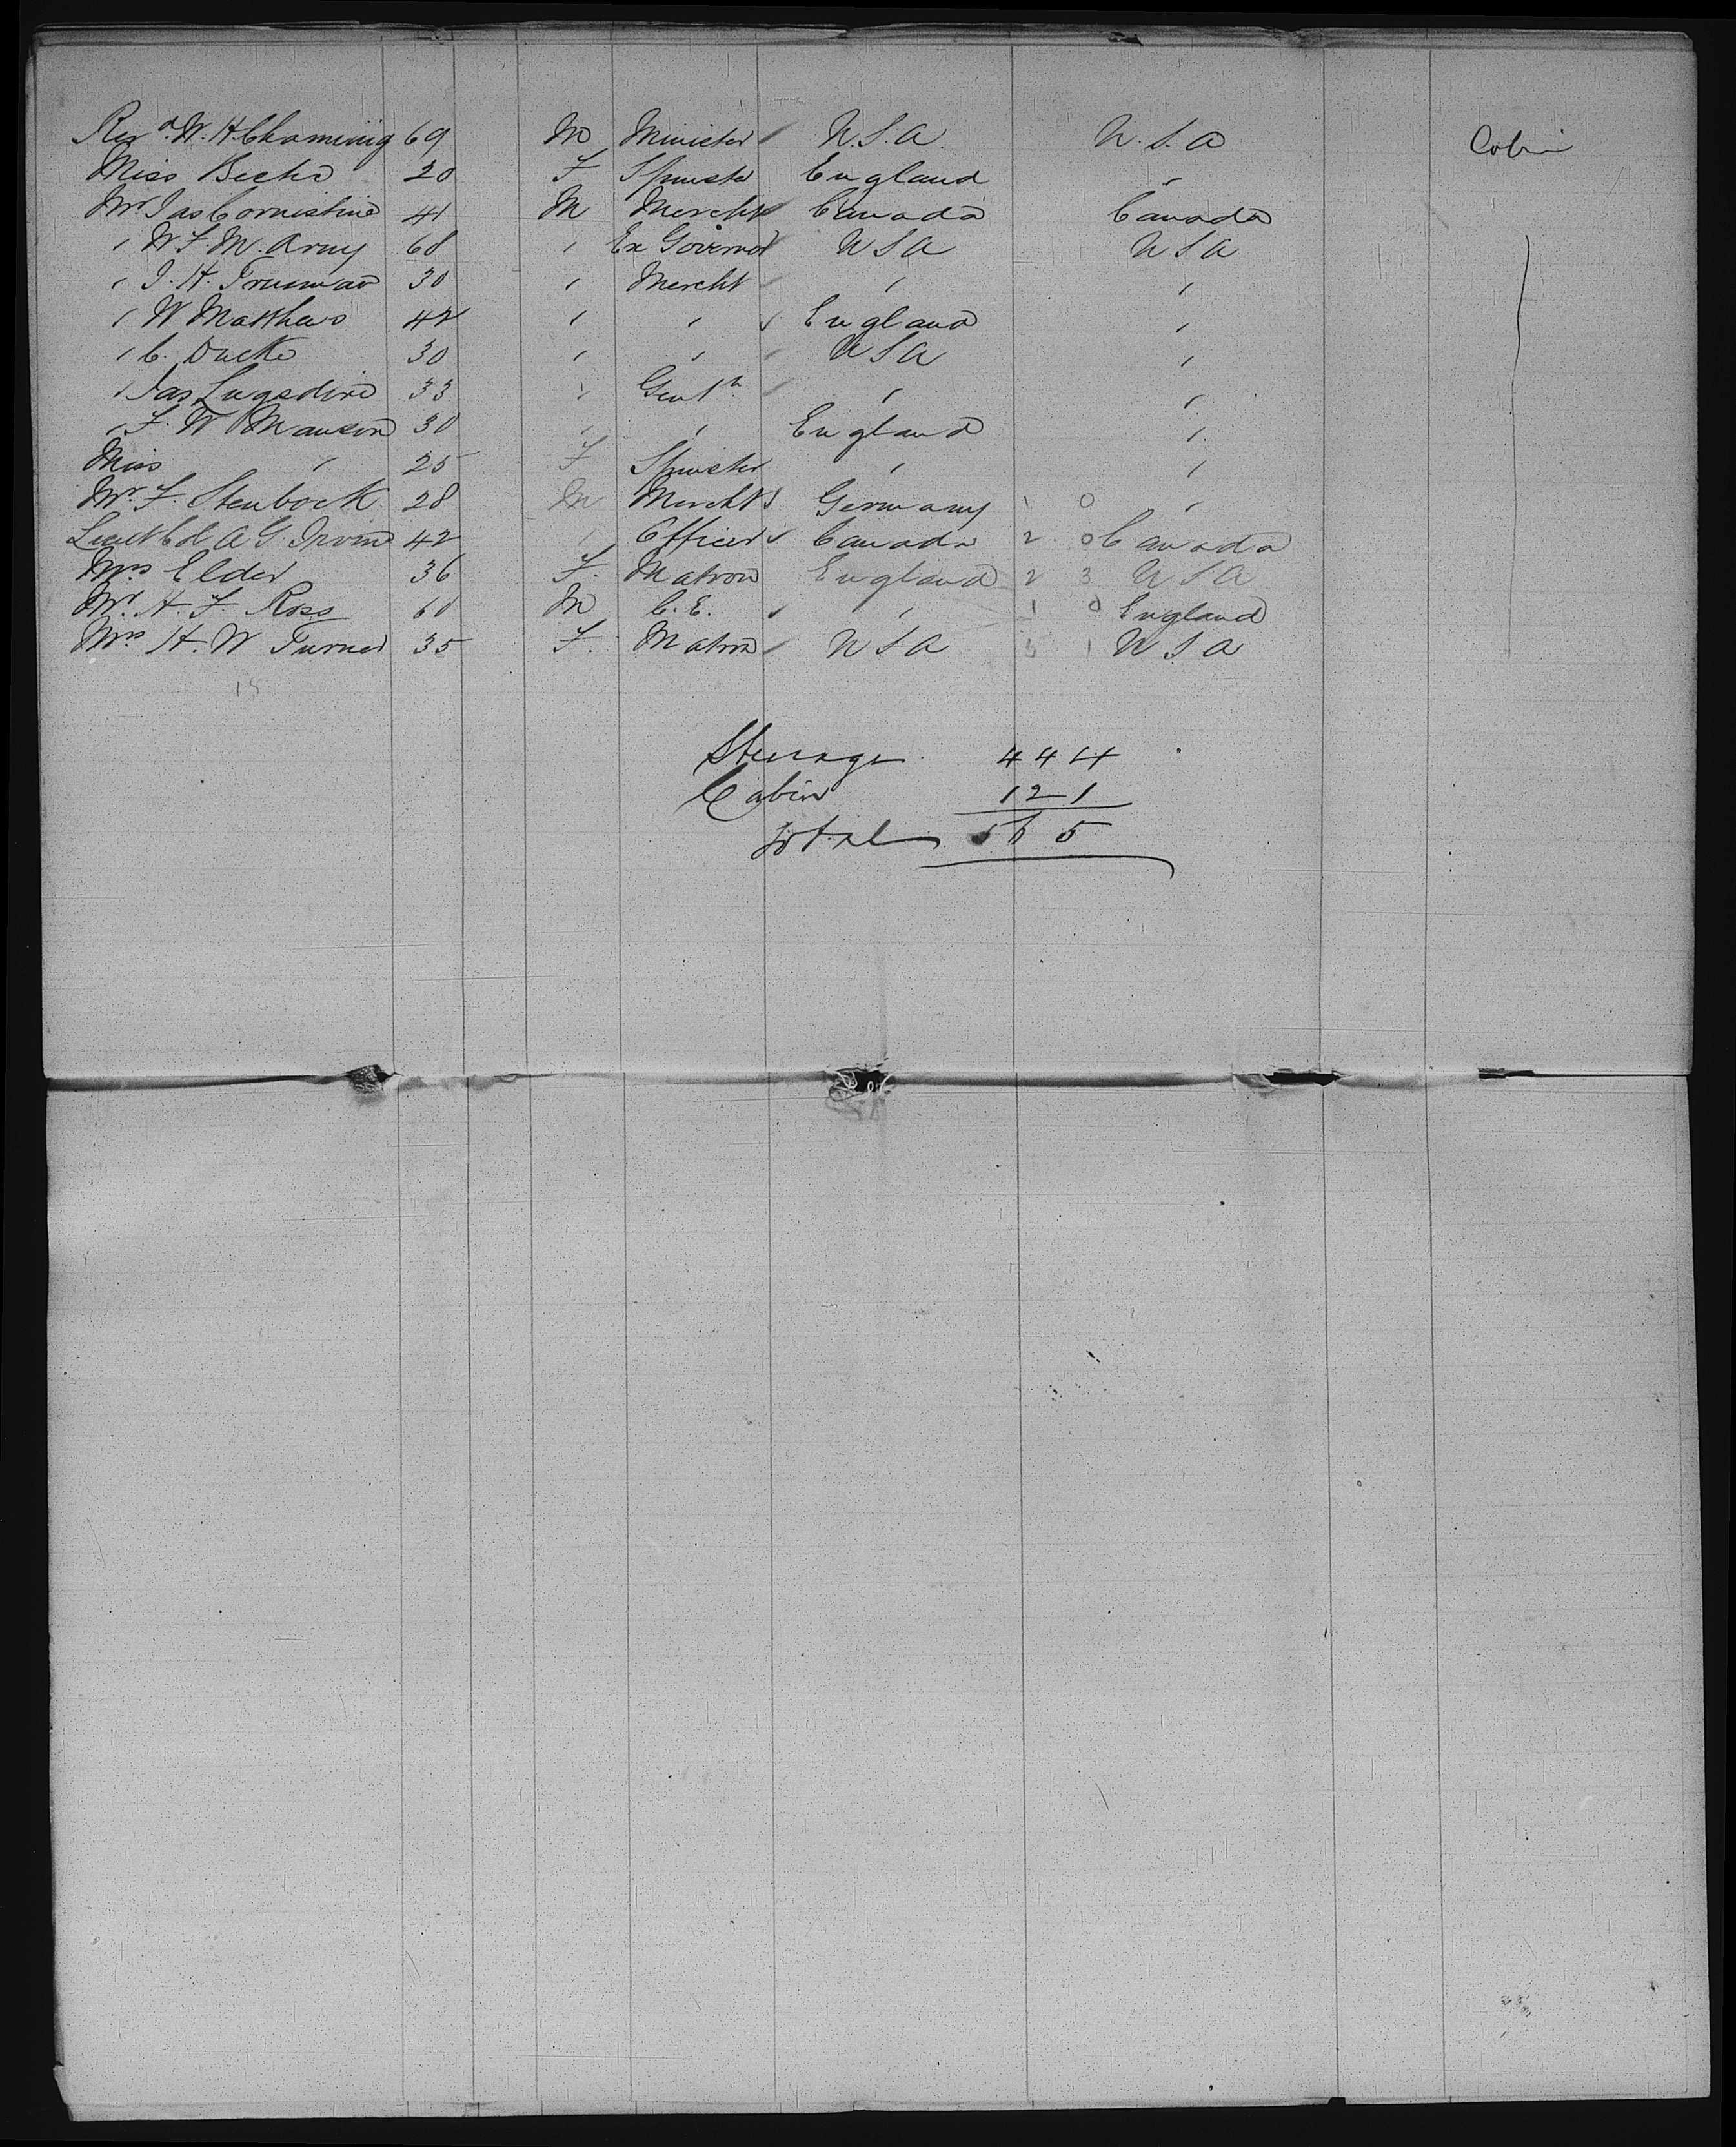 Revd. W. H. Channing 69 M Minister U.S.A. U.S.A Cabin
Miss Becke 20 F Spinster England "
Mr Jas Cornistine 41 M Mercht Canada Canada
" W F M. Arny 68 " Ex Governor U S A U S A
" J. H. Trueman 30 " Mercht " "
" W Matthews 42 " " England "
" C. Ducke 30 " " U S A "
" Jas Lugsdine 33 " Gentn " "
" F. W Manson 30 " " England "
Miss " 25 F Spinster " "
Mr. F. Stenbock 28 M Mercht Germany 1 0 "
Lieut Col A G. Irvine 42 " Officer Canada 2 0 Canada
Mrs Elder 36 F. Matron England 2 3 U S A
Mr. H. F. Ross 60 M C. E. " 1 0 England
Mrs H. W Turner 35 F. Matron U S A 1 U S A
15
Steerage 444
Cabin 121
Total 565